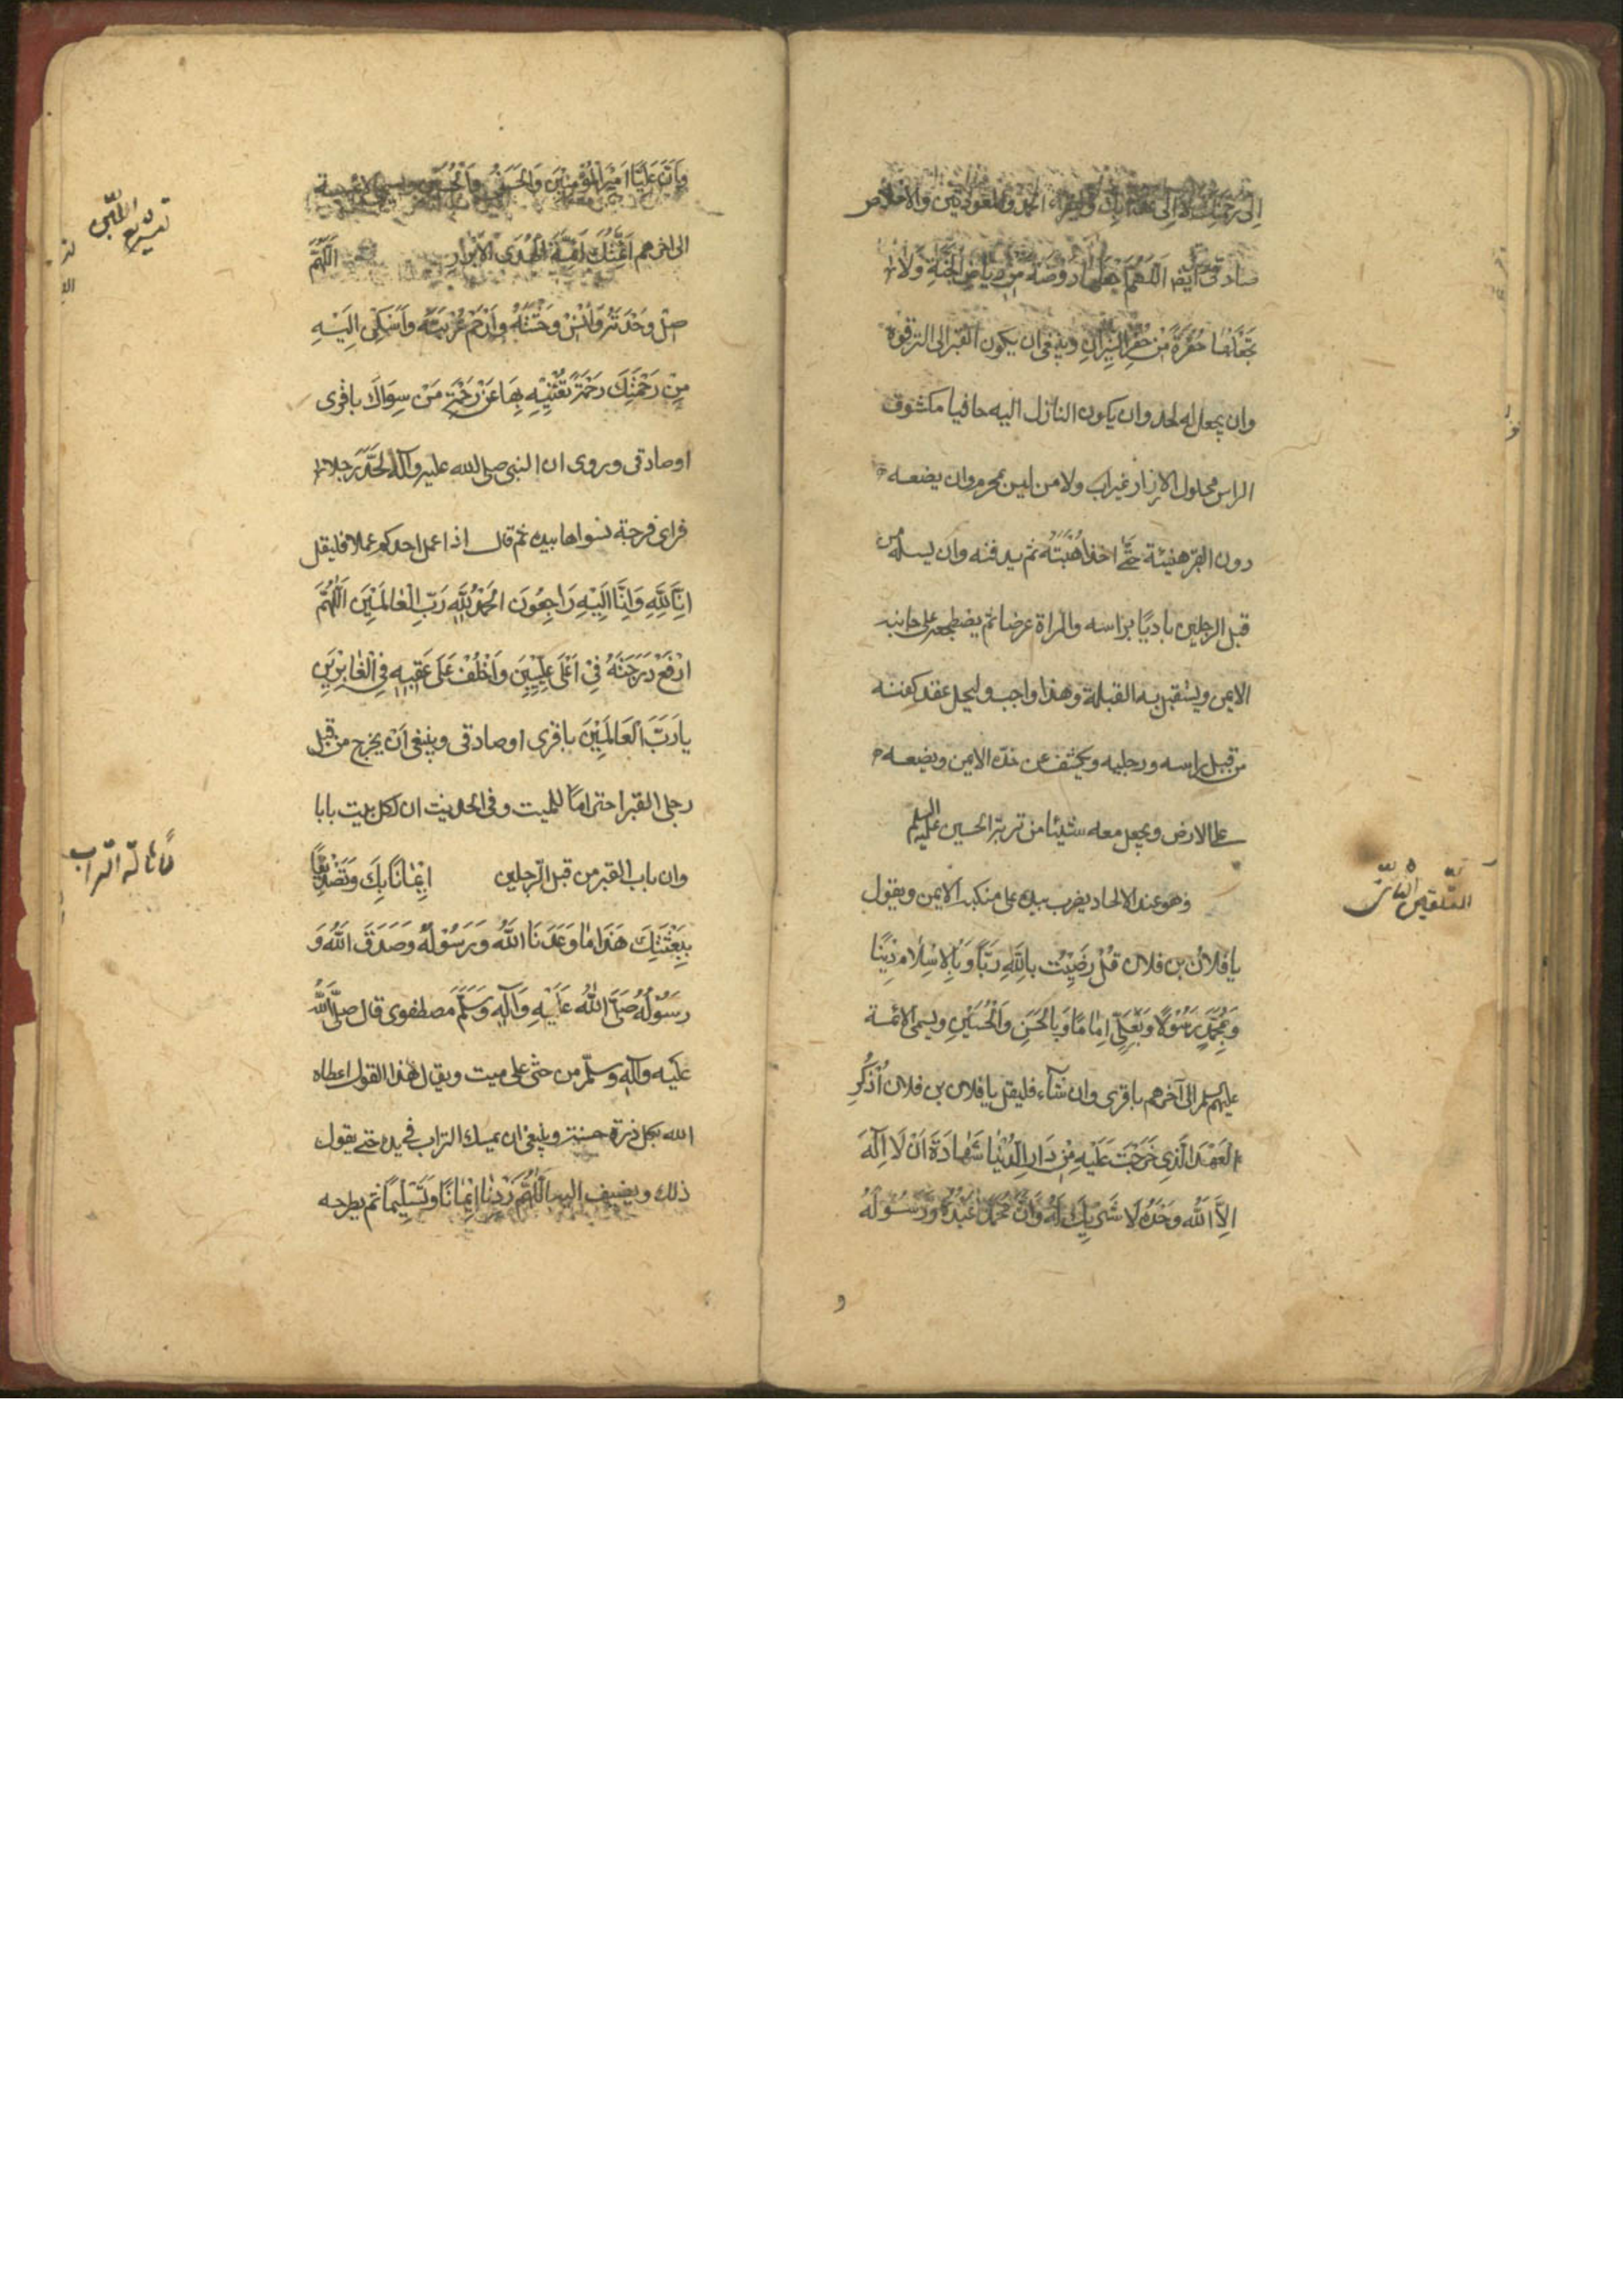 الى رحمتك لا الى عذابك ويقراء الحمد والمعوذتين والاخلاص
صادقى ايضا اللهم اجعلها روضة من رياض الجنة ولا
تجعلها حفرة من حفر النيران وينبغى ان يكون القبر الى الترقوة
وان يجعل له لحد وان يكون النازل اليه حافيا مكشوف
الراس محلول الازار غير اب ولا من ليس بمحرم وان يضعه
دون القبر هنيئة حتى اخذ اهبته ثم يدفنه وان يسله من
قبل الرجلين باديا براسه والمراة عرضا ثم يضطجعه على جانبه
الايمن ويستقبل به القبلة وهذا واجب وليحل عقد كفنه
من قبل راسه ورجليه ويكشف عن خده الايمن ويضعه
على الارض ويجعل معه شيئا من تربة الحسين عليه السلم
التلقين الثانى
وهو عند الالحاد يضرب بيده على منكبه الايمن ويقول
يا فلان بن فلان قُلْ رَضِيْتُ بِاللّٰهِ رَبًّا وَبِالْاِسْلَامِ دِيْنًا
وَبِمُحَمَّدٍ رَسُوْلًا وَبِعَلِىٍّ اِمَامًا وَبِالْحَسَنِ وَالْحُسَيْنِ ويسمى الائمة
عليهم السلم الى آخرهم باقرى وان شآء فليقل يا فلان بن فلان اُذْكُرِ
الْعَهْدَ الَّذِى خَرَجْتَ عَلَيْهِ مِنْ دَارِ الدُّنْيَا شَهَادَةَ اَنْ لَا اِلٰهَ
اِلَّا اللّٰهُ وَحْدَهُ لَا شَرِيْكَ لَهُ وَاَنَّ مُحَمَّدًا عَبْدُهُ وَرَسُوْلُهُ
و
وَاَنَّ عَلِيًّا اَمِيْرُ الْمُؤْمِنِيْنَ وَالْحَسَنُ وَالْحُسَيْنُ ويسمى الائمة
الى اخرهم اَئِمَّتُكَ اَئِمَّةُ الْهُدَى الْاَبْرَارِ اَللّٰهُمَّ
تشريع اللبن
صِلْ وَحْدَتَهُ وَاٰنِسْ وَحْشَتَهُ وَارْحَمْ غُرْبَتَهُ وَاَسْكِنْ اِلَيْهِ
مِنْ رَحْمَتِكَ رَحْمَةً تُغْنِيْهِ بِهَا عَنْ رَحْمَةِ مَنْ سِوَاكَ باقرى
او صادقى وروى ان النبى صلى الله عليه وآله لحّد رجلا
فراى فرجة فسواها بيده ثم قال اذا عمل احدكم عملا فليقل
اِنَّا لِلّٰهِ وَاِنَّا اِلَيْهِ رَاجِعُوْنَ اَلْحَمْدُ لِلّٰهِ رَبِّ الْعَالَمِيْنَ اَللّٰهُمَّ
ارْفَعْ دَرَجَتَهُ فِىْ اَعْلَى عِلِّيِّيْنَ وَاخْلُفْ عَلَى عَقِبِهِ فِى الْغَابِرِيْنَ
يَا رَبَّ الْعَالَمِيْنَ باقرى او صادقى وينبغى ان يخرج من قبل
رجلى القبر احتراما للميت وفى الحديث ان لكل بيت بابا
وان باب القبر من قبل الرجلين اِيْمَانًا بِكَ وَتَصْدِيْقًا
بِبَعْثِكَ هَذَا مَا وَعَدَنَا اللّٰهُ وَرَسُوْلُهُ وَصَدَقَ اللّٰهُ وَ
رَسُوْلُهُ صَلَّى اللّٰهُ عَلَيْهِ وَآلِهِ وَسَلَّمَ مصطفوى قال صلى الله
عليه وآله وسلم من حثى على ميت ويقال هذا القول اعطاه
الله بكل ذرة حسنة وينبغى ان يمسك التراب فى يده حتى يقول
ذلك ويضيف اليه اَللّٰهُمَّ زِدْنَا اِيْمَانًا وَتَسْلِيْمًا ثم يطرحه